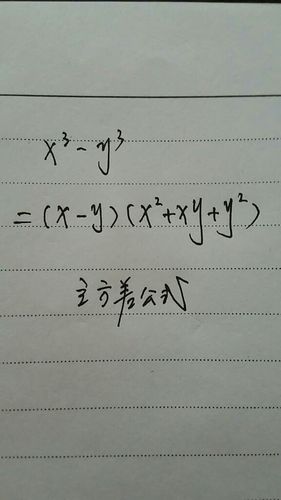 x³-y³
=(x-y)(x²+xy+y²)
立方差公式